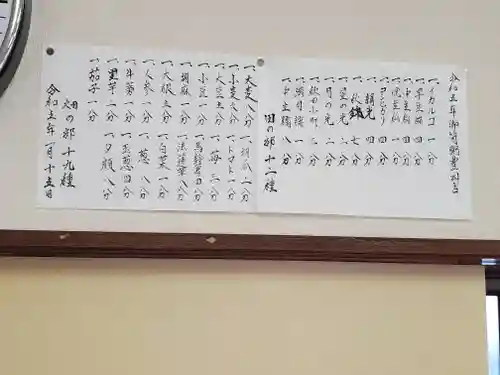 令和五年 御筒粥豊凶占
一、イカルコ 一分
一、早生 四分
一、中生 四分
一、虎生仙 一分
一、コシヒカリ 四分
一、朝光 四分
一、秋錦 七分
一、星の光 二分
一、月の光 二分
一、秋田小町 三分
一、朝日 一分
一、中生 八分
田の部 十二種
一、大麦 八分
一、小麦 六分
一、大豆 五分
一、小豆 一分
一、胡麻 一分
一、大根 五分
一、人参 一分
一、牛蒡 一分
一、里芋 二分
一、茄子 一分
一、胡瓜 二分
一、トマト 一分
一、苺 三分
一、馬鈴薯 四分
一、法蓮草 八分
一、白菜 一分
一、葱 八分
一、玉葱 四分
一、夕顔 八分
畑の部 十九種
令和五年一月十五日